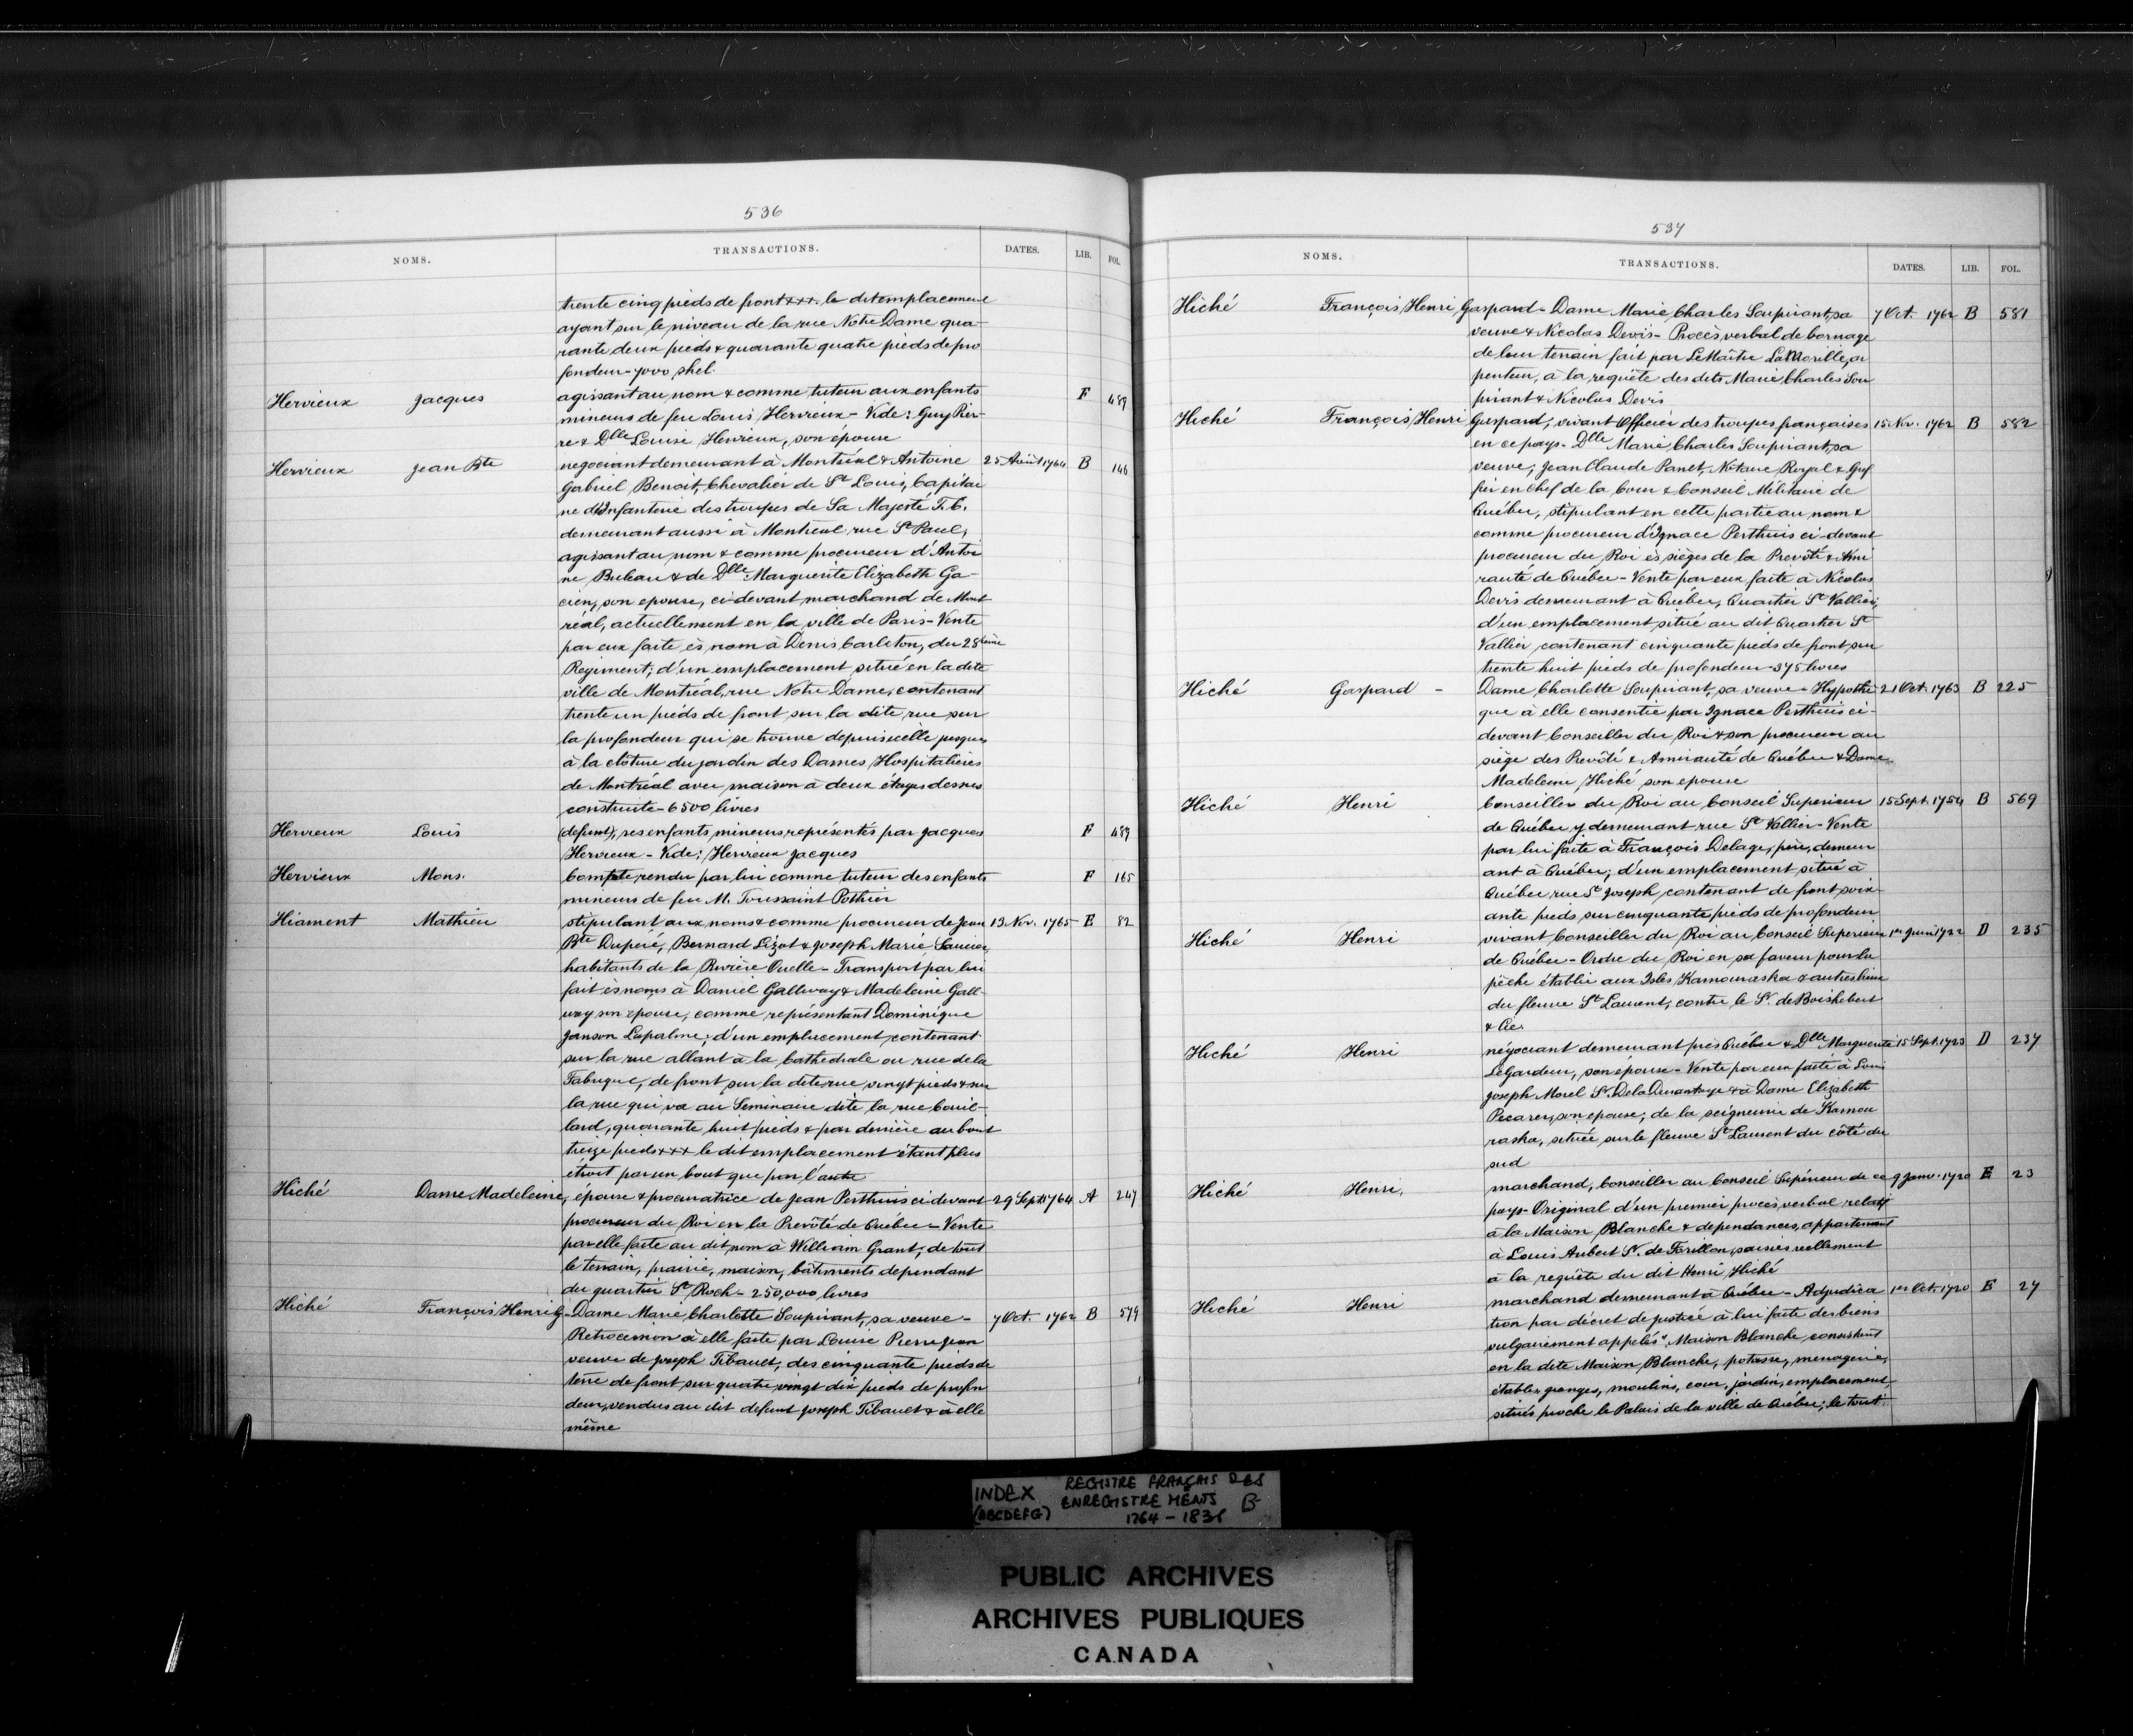 536
NOMS. TRANSACTIONS. DATES. LIB. FOL.
trente cinq pieds de front +++. le dit emplacement
ayant sur le niveau de la rue Notre Dame qua-
rante deux pieds & quarante quatre pieds de pro
fondeur - 7000 shel.
Hervieux Jacques agissant au nom & comme tuteur aux enfants F 489
mineurs de feu Louis Hervieux - Vide: Guy Pier-
re & Dlle Louise Hervieux, son épouse
Hervieux Jean Bte negociant demeurant à Montréal & Antoine 25 Août 1764 B 146
Gabriel Benoit, Chevalier de St Louis, Capitai
ne d'Infanterie des troupes de Sa Majesté T. C.
demeurant aussi à Montréal rue St Paul,
agissant au nom & comme procureur d'Antoi
ne Buleau & de Dlle Marguerite Elizabeth Ga-
cien, son epouse, ci-devant marchand de Mont
réal, actuellement en la ville de Paris - Vente
par eux faite ès nom à Denis Carleton, du 28ième
Regiment; d'un emplacement situé en la dite
ville de Montréal, rue Notre Dame, contenant
trente un pieds de front sur la dite rue sur
la profondeur qui se trouve depuis icelle jusques
à la clôture du jardin des Dames Hospitalières
de Montréal avec maison à deux étages dessus
construite - 6500 livres
Hervieux Louis (defunt), ses enfants mineurs représentés par Jacques F 489
Hervieux - Vide: Hervieux Jacques
Hervieux Mons. Compte rendu par lui comme tuteur des enfants F 165
mineurs de feu M. Toussaint Pothier
Hiament Mathieu stipulant aux noms & comme procureur de Jean 13 Nov. 1765 E 82
Bte Dupéré, Bernard Lizot & Joseph Marie Saucier
habitants de la Rivière Ouelle - Transport par lui
fait ès noms à Daniel Gallway & Madeleine Gall-
way son épouse, comme représentant Dominique
Janson Lapalme; d'un emplacement contenant
sur la rue allant à la Cathédrale ou rue de la
Fabrique, de front sur la dite rue vingt pieds & sur
la rue qui va au Seminaire dite la rue Couil-
lard, quarante huit pieds & par derrière au bout
treize pieds +++ le dit emplacement étant plus
étroit par un bout que par l'autre
Hiché Dame Madeleine, épouse & procuratrice de Jean Perthuis ci devant 29 Sept 1764 A 247
procureur du Roi en la Prevôté de Québec - Vente
par elle faite au dit nom à William Grant; de tout
le terrain, prairie, maison, bâtiments dependant
du quartier St Roch - 250,000 livres
Hiché François Henri G - Dame Marie Charlotte Soupirant, sa veuve - 7 Oct. 1762 B 579
Retrocession à elle faite par Louise Pierrejean
veuve de Joseph Tibault, des cinquante pieds de
terre de front sur quatre vingt dix pieds de profon
deur, vendus au dit defunt Joseph Tibault & à elle
même
537
NOMS. TRANSACTIONS. DATES. LIB. FOL.
Hiché François Henri Gaspard - Dame Marie Charles Soupirant, sa 7 Oct. 1762 B 581
veuve & Nicolas Devis - Procès verbal de bornage
de leur terrain fait par LeMaître LaMorille, ar
penteur, à la requête des dits Marie Charles Sou
pirant & Nicolas Devis
Hiché François Henri Gaspard, vivant Officier des troupes françaises 15 Nov. 1762 B 582
en ce pays - Dlle Marie Charles Soupirant, sa
veuve; Jean Claude Panet, Notaire Royal & Gref
fier en chef de la Cour & Conseil Militaire de
Québec, stipulant en cette partie au nom &
comme procureur d'Ignace Perthuis ci-devant
procureur du Roi ès sièges de la Prevôté & Ami
rauté de Québec - Vente par eux faite à Nicolas
Devis demeurant à Québec, Quartier St Vallier,
d'un emplacement situé au dit Quartier St
Vallier contenant cinquante pieds de front sur
trente huit pieds de profondeur - 375 livres
Hiché Gaspard - Dame Charlotte Soupirant, sa veuve - Hypothè 21 Oct. 1763 B 225
que à elle consentie par Ignace Perthuis ci-
devant Conseiller du Roi & son procureur au
siège des Prevôté & Amirauté de Québec & Dame
Madeleine Hiché son epouse
Hiché Henri Conseiller du Roi au Conseil Superieur 15 Sept. 1754 B 569
de Québec y demeurant rue St Vallier - Vente
par lui faite à François Delage, père, demeur
ant à Québec; d'un emplacement situé à
Québec rue St Joseph contenant de front soix-
ante pieds sur cinquante pieds de profondeur
Hiché Henri vivant Conseiller du Roi au Conseil Superieur 1er Juin 1722 D 235
de Québec - Ordre du Roi en sa faveur pour la
pêche établie aux Isles Kamouraska & autres lieux
du fleuve St Laurent, contre le Sr. de Boishebert
& Cie.
Hiché Henri négociant demeurant près Québec & Dlle Marguerite 15 Sept. 1723 D 237
LeGardeur, son épouse - Vente par eux faite à Louis
Joseph Morel Sr. De la Durantaye & à Dame Elizabeth
Pecarer, son epouse; de la seigneurie de Kamou
raska, située sur le fleuve St Laurent du côté du
sud
Hiché Henri, marchand, Conseiller au Conseil Supérieur de ce 9 Janv. 1720 E 23
pays - Original d'un premier procès verbal relatif
à la Maison Blanche & dependances, appartenant
à Louis Aubert Sr. de Forillon, saisies reellement
à la requête du dit Henri Hiché
Hiché Henri marchand demeurant à Québec - Adjudica 1er Oct. 1720 E 27
tion par décret de justice à lui faite des biens
vulgairement appelés "Maison Blanche, consistant
en la dite Maison Blanche, potasse, menagerie,
étables, granges, moulins, cour, jardin, emplacement,
situés proche le Palais de la ville de Québec; le tout
INDEX REGISTRE FRANÇAIS DES
(ABCDEFG) ENREGISTREMENTS B
1764 - 1838
PUBLIC ARCHIVES
ARCHIVES PUBLIQUES
CANADA